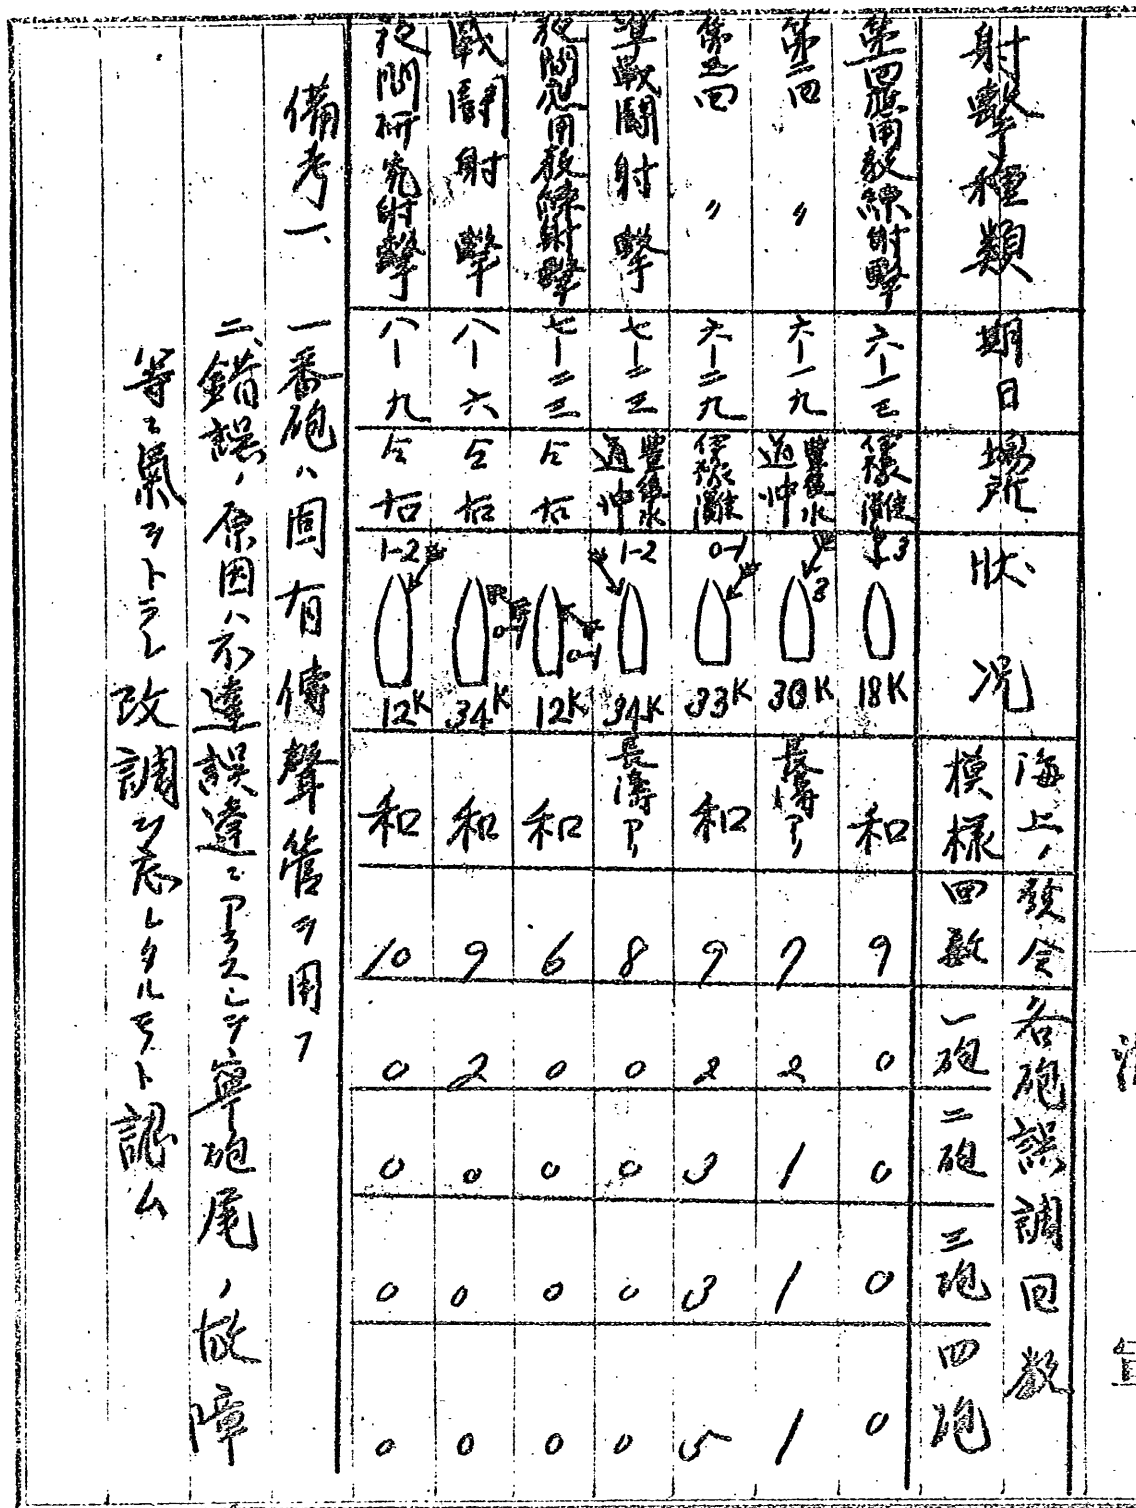 射擊種類 期日 場所 狀況 海上ノ模樣 發令回數 各砲誤調回數 一砲 二砲 三砲 四砲
第四應用敎練射擊 六-一三 伊豫灘 3 18K 和 9 0 0 0 0
第二回〃 六-一九 豐後水道沖 3 30K 長濤アリ 7 2 1 1 1
第五回〃 六-二九 伊豫灘 0-1 33K 和 9 2 3 3 5
準戰鬪射擊 七-二三 豐後水道沖 1-2 34K 長濤アリ 8 0 0 0 0
夜間應用敎練射擊 七-二三 仝右 0-1 12K 和 6 0 0 0 0
戰鬪射擊 八-六 仝右 0-1 34K 和 9 2 0 0 0
夜間硏究射擊 八-九 仝右 1-2 12K 和 10 0 0 0 0
備考一、一番砲ハ固有傳聲管ヲ用フ
二、錯誤ノ原因ハ不達誤達ニアラズシテ寧砲尾ノ故障
等ニ氣ヲトラレ改調ヲ忘レタルモノト認ム